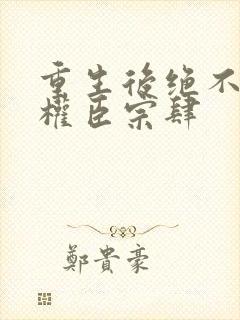 重生後绝不
權臣宗肆
鄭貴豪